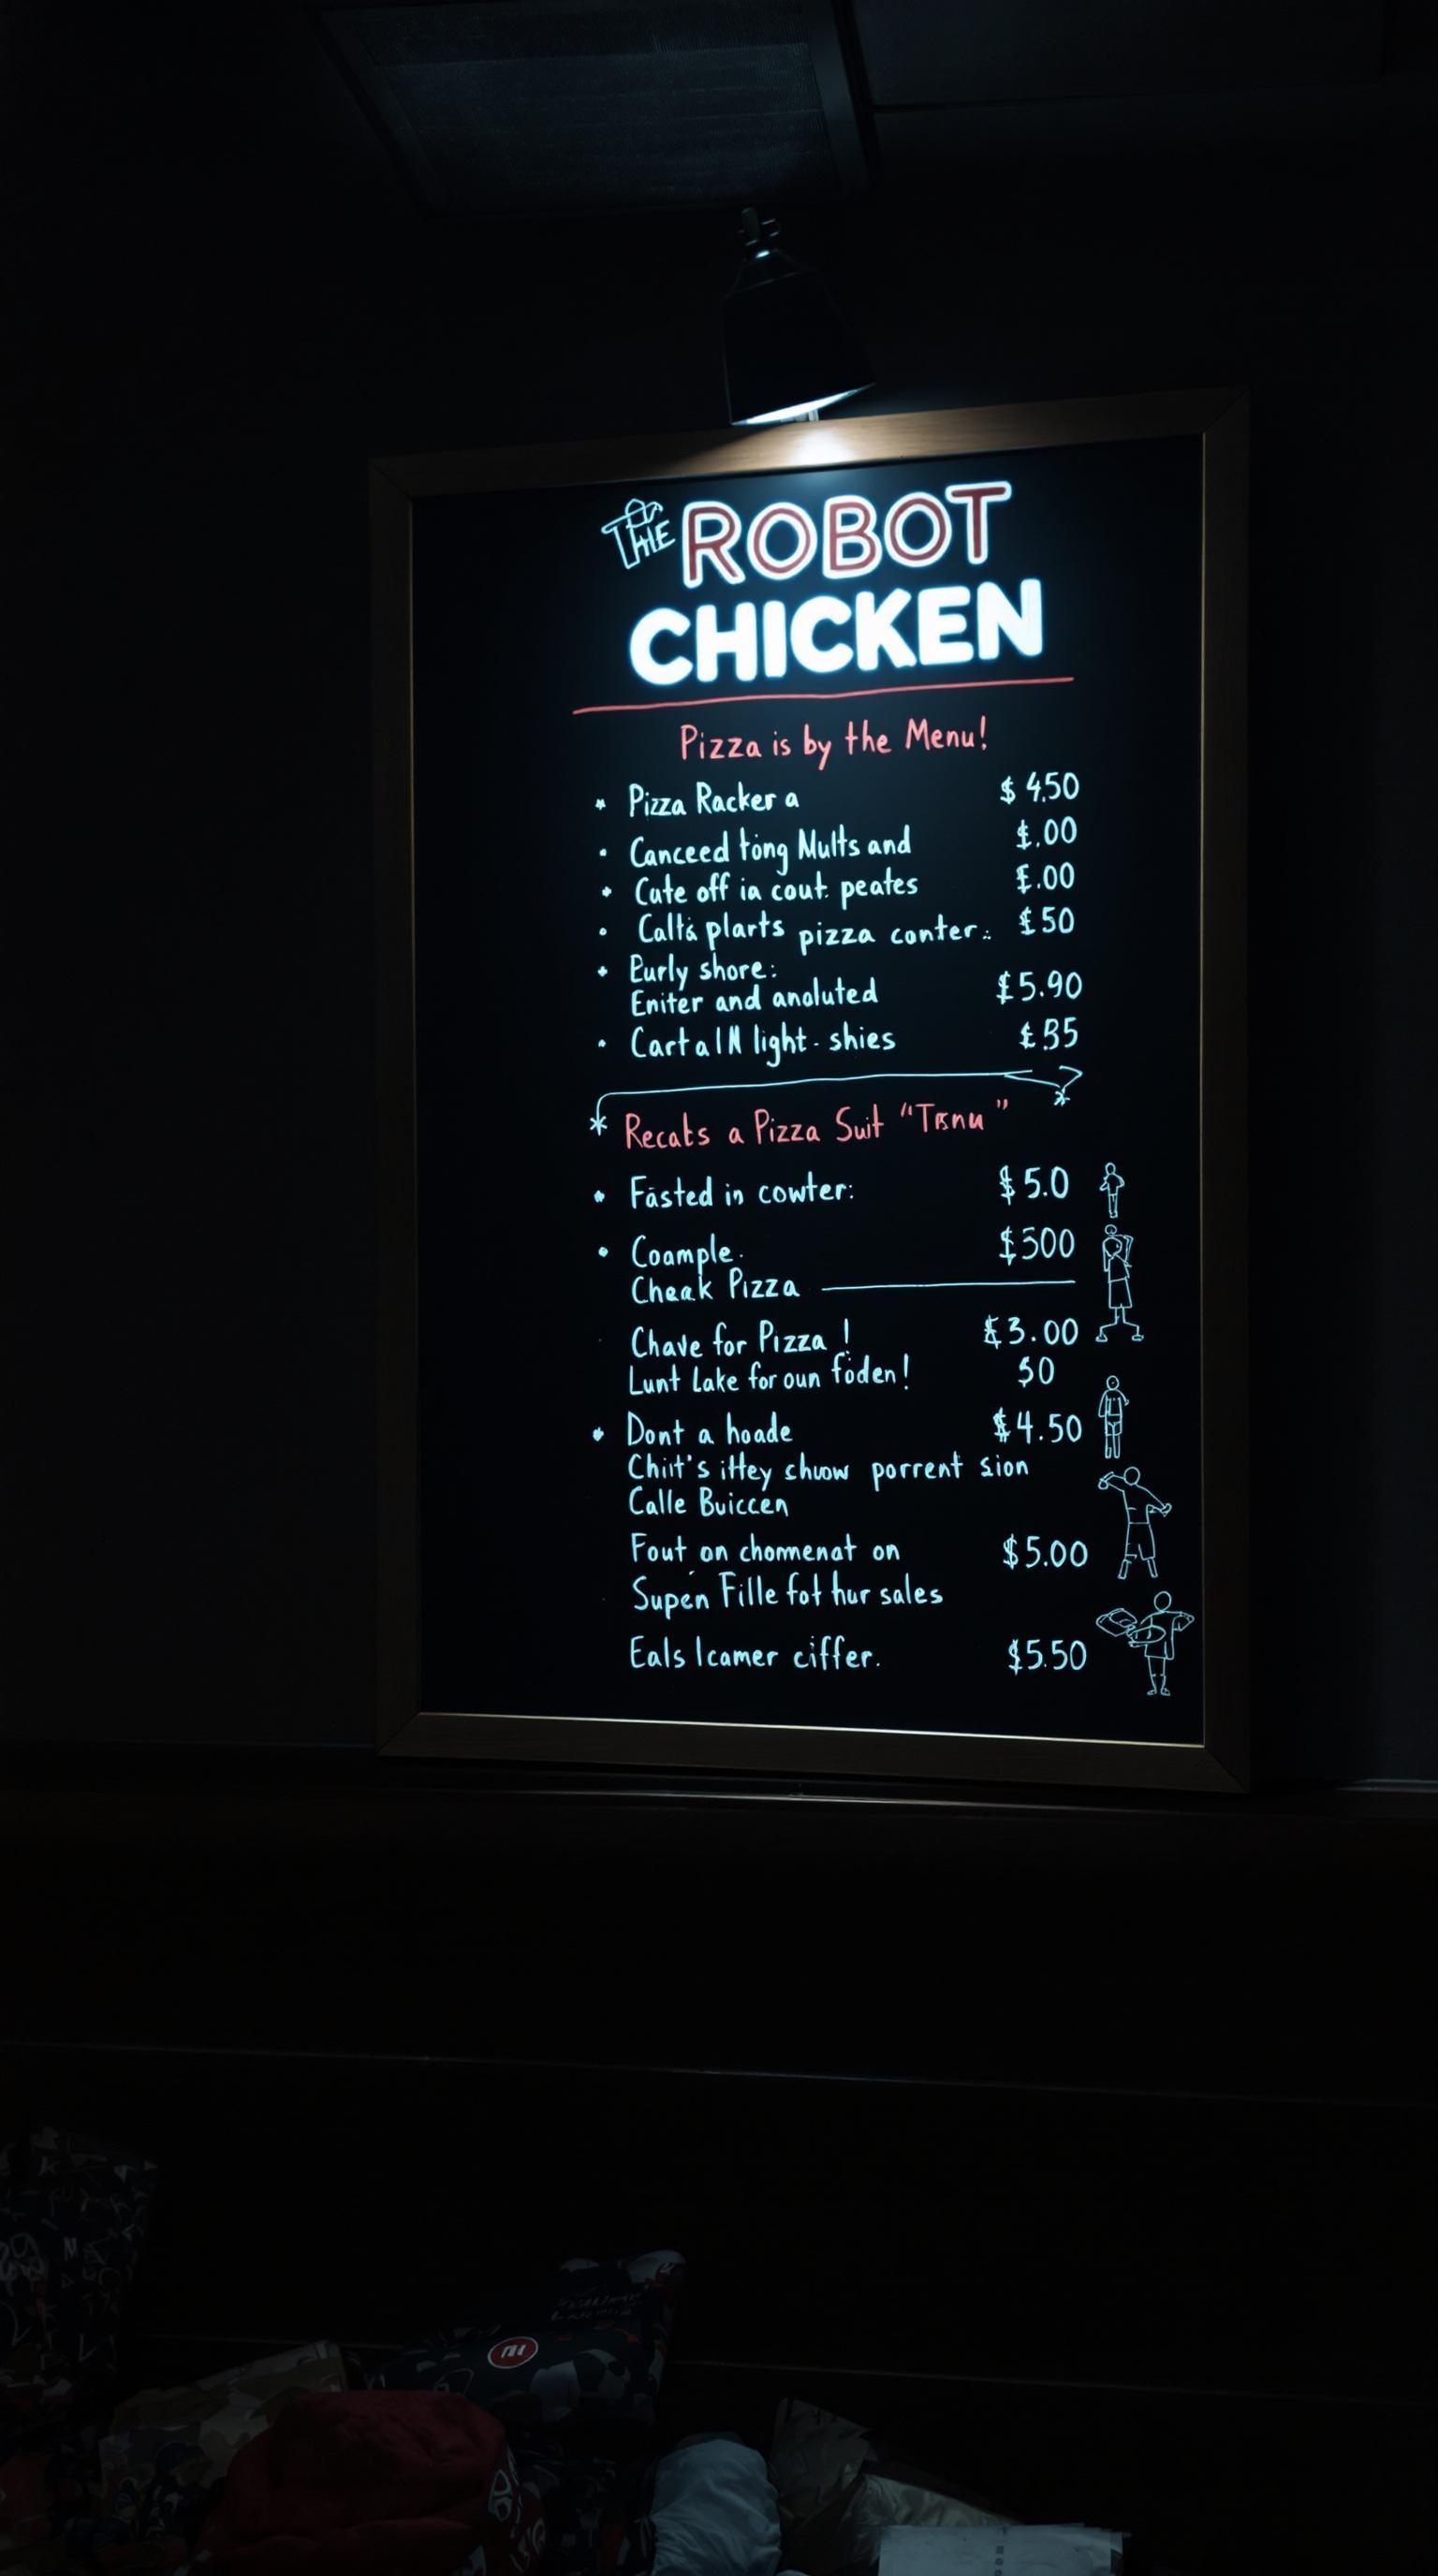 THE ROBOT
CHICKEN
Pizza is by the Menu!
Pizza Racker a $ 4.50
Canceed tong Mults and £.00
Cute off ia cout. peates £.00
Calta plarts pizza conter.: £50
Burly shore:
Eniter and anoluted £5.90
light - shies
* Recats a Pizza Suit "Trsnu"
Fasted in cowter: $5.0
Coample. $300
Cheak Pizza
Chave for Pizza! £3.00
Lunt Lake for oun foden! $0
Dont a hoade $4.50
Chiit's ittey chuow porrent sion
Calle Buiccen
Fout on chomenat on $5.00
Supen Fille fot hur sales
Eals lcamer ciffer. $5.50